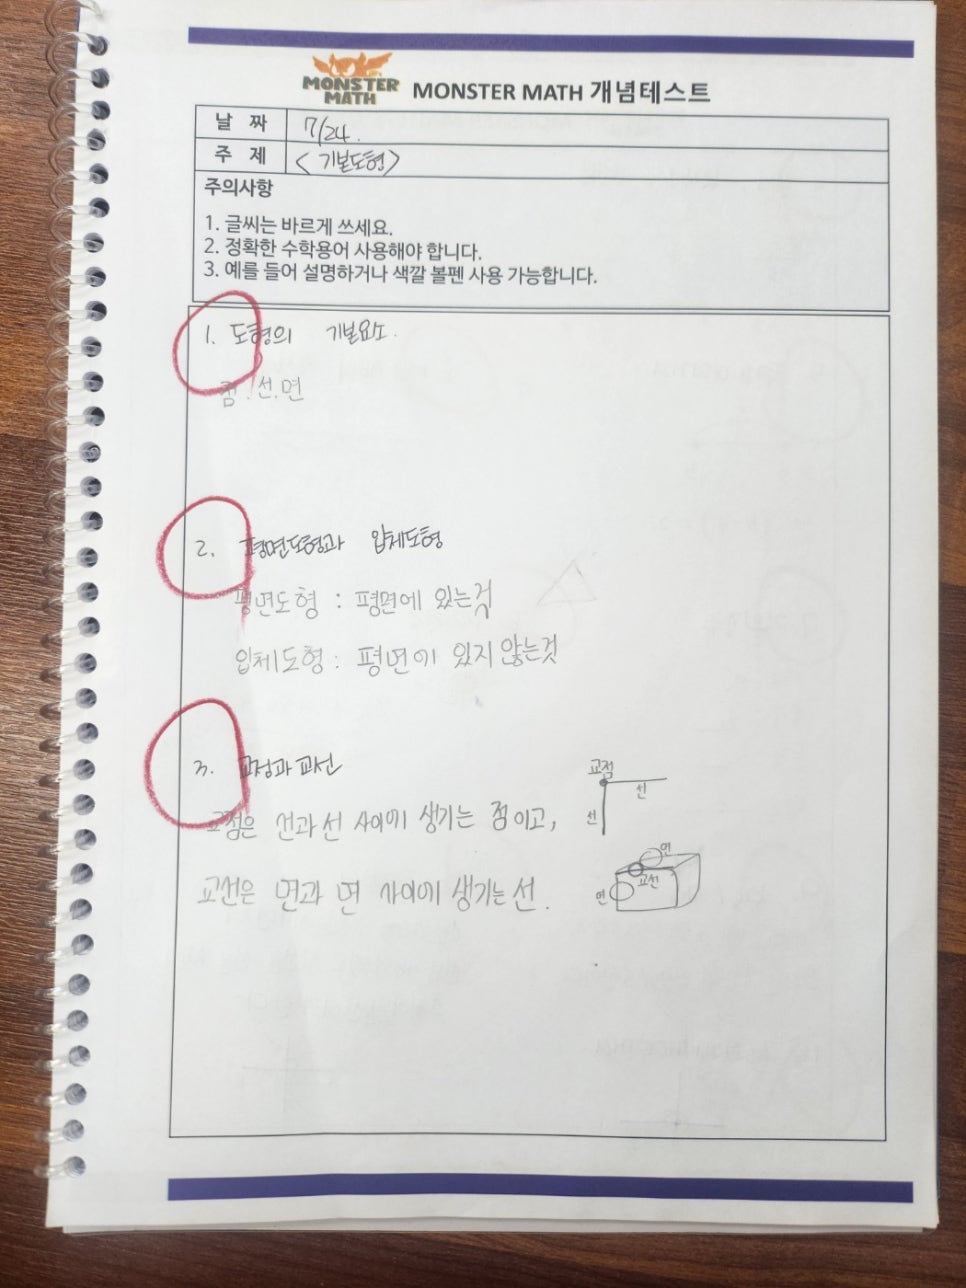 MONSTER
MATH
MONSTER MATH 개념테스트
날 짜 7/24.
주 제 <기본도형>
주의사항
1. 글씨는 바르게 쓰세요.
2. 정확한 수학용어 사용해야 합니다.
3. 예를 들어 설명하거나 색깔 볼펜 사용 가능합니다.
1. 도형의 기본요소.
점.선.면
2. 평면도형과 입체도형
평면도형 : 평면에 있는것
입체도형 : 평면에 있지 않는것
3. 교점과 교선
교점
선
선
교점은 선과 선 사이에 생기는 점이고,
면
교선
면
교선은 면과 면 사이에 생기는 선.